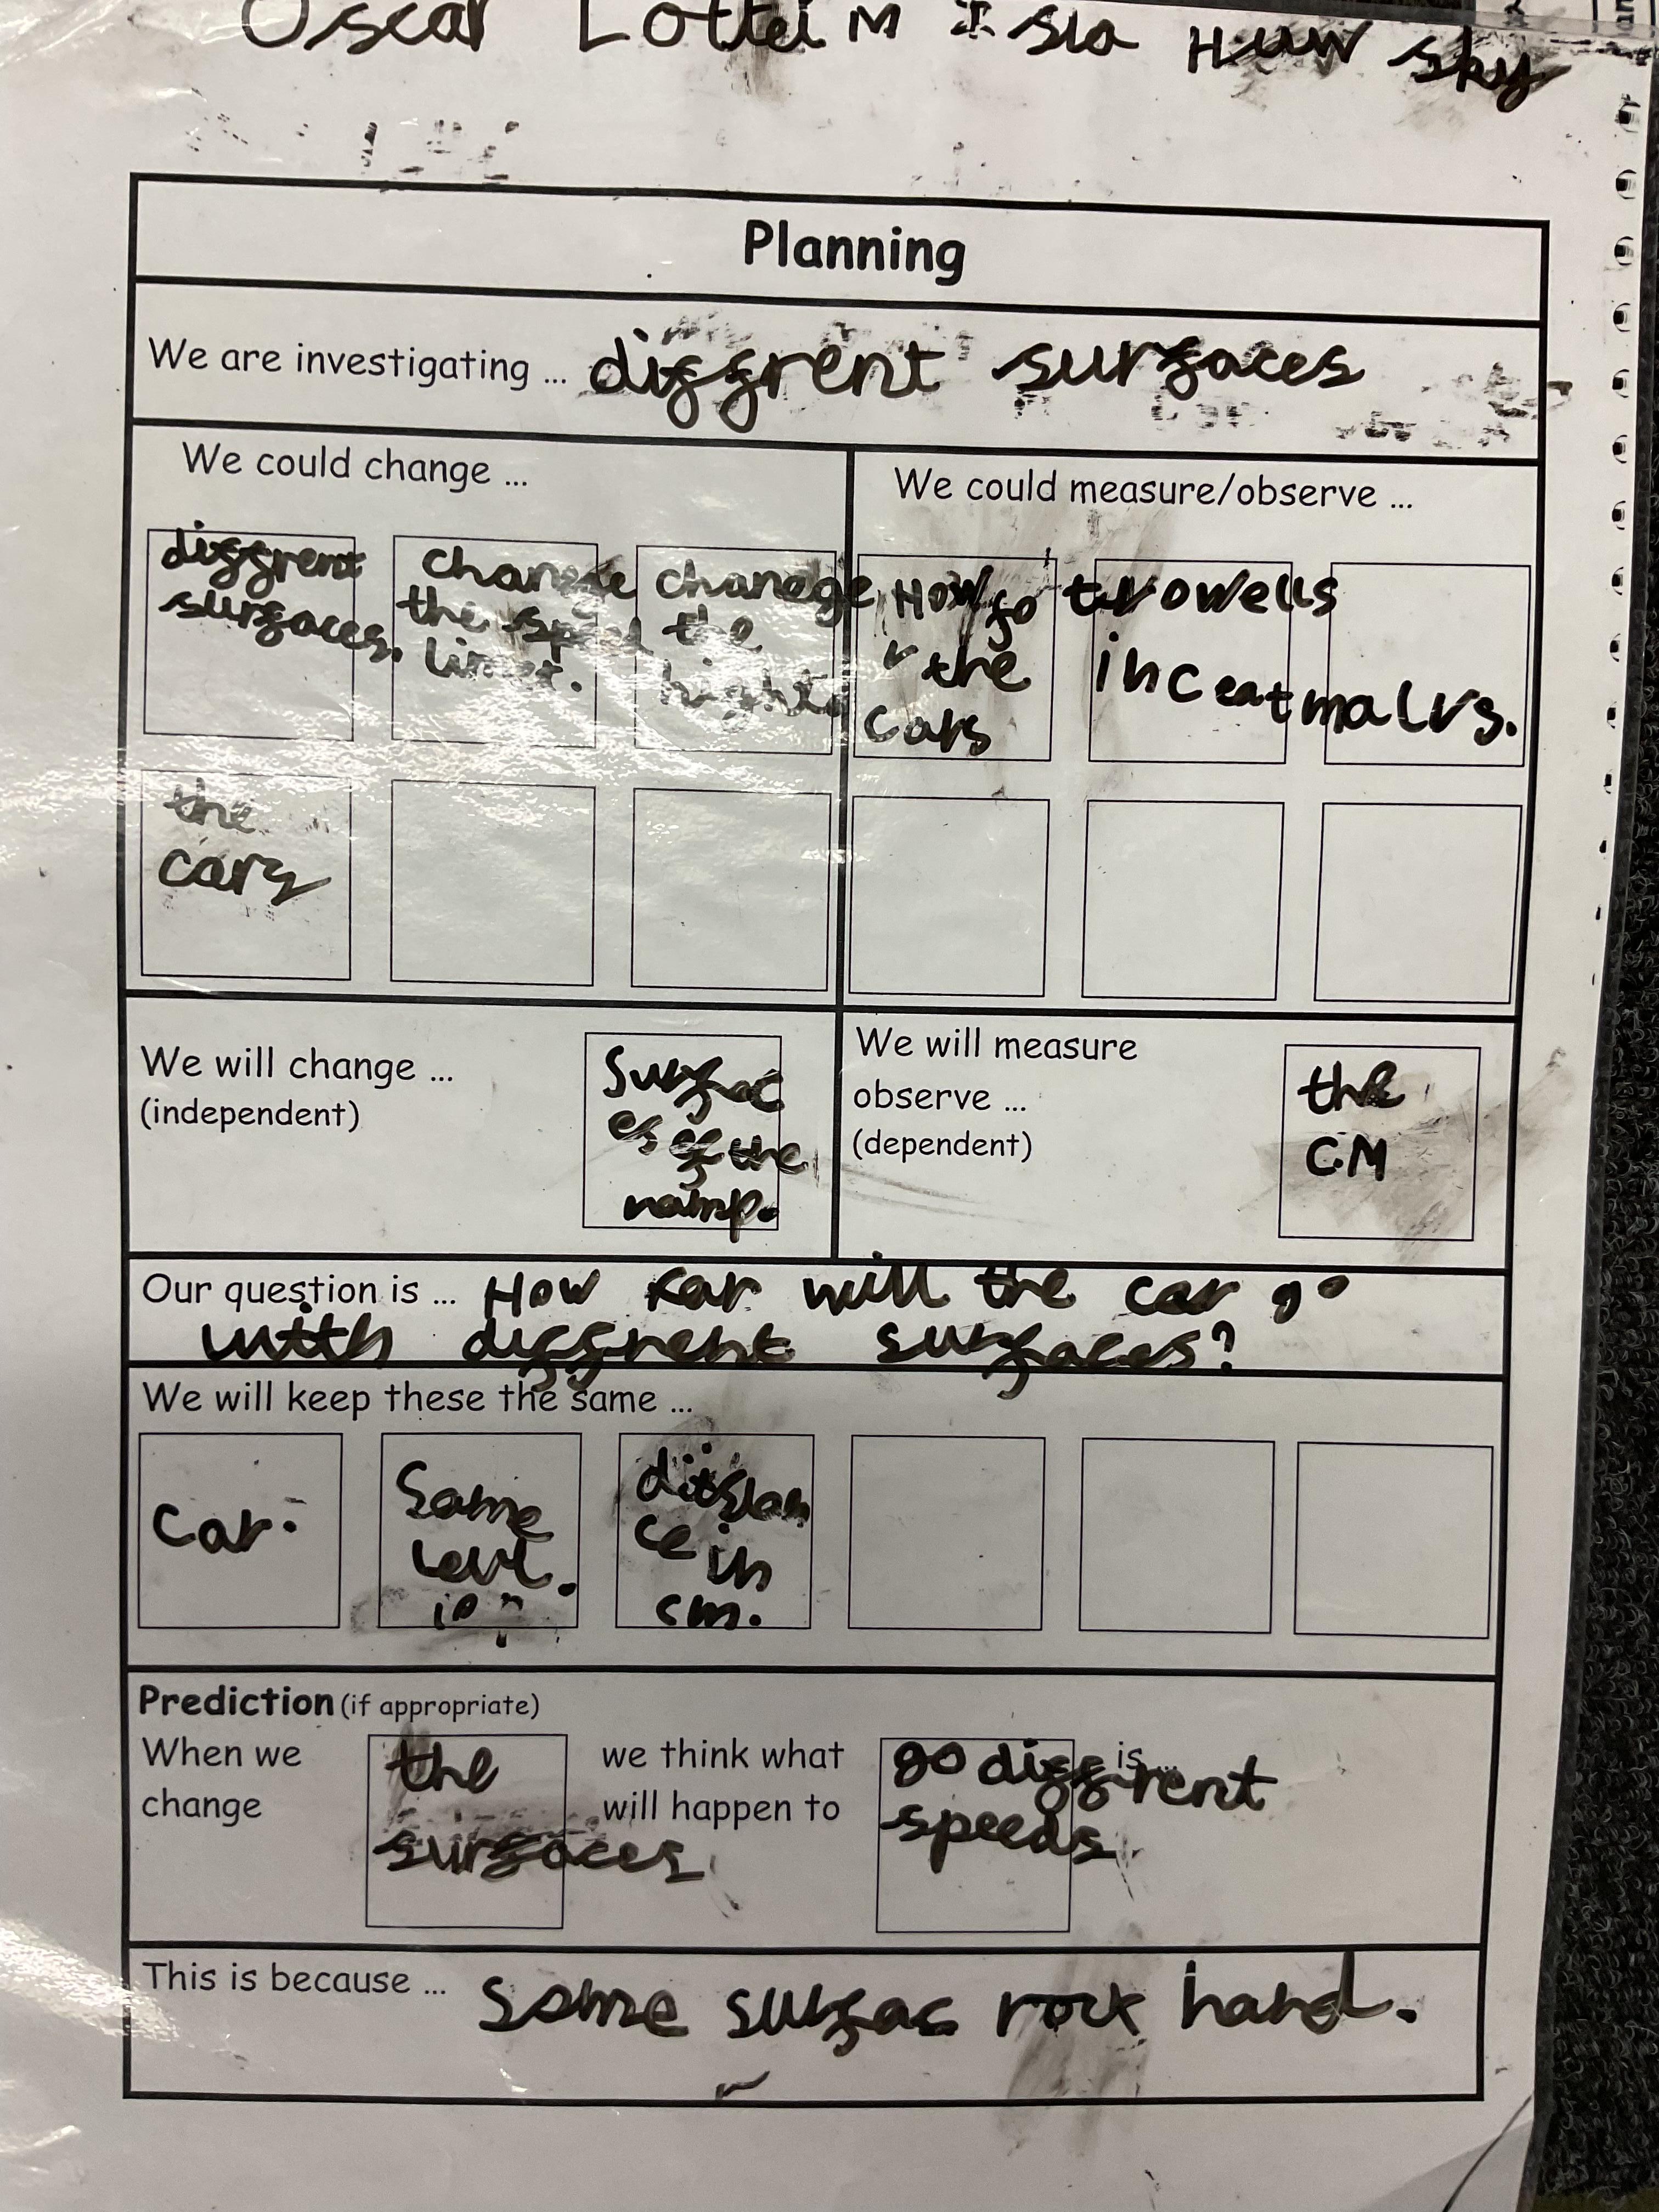 Oscar Lottei M Isla Huw Sky
Planning
We are investigating ... diffrent surfaces
We could change ...
diffrent
surfaces.
change
the speed
limet.
chanege
the
hight
the
cars
We could measure/observe ...
How fo
r the
cars
trvowells
in ceatmalvs.
We will change ...
(independent)
Surfac
es of the
ramp.
We will measure
observe ...
(dependent)
the
CM
Our question is ... How far will the car go
with diffrent surfaces?
We will keep these the same ...
Car.
Same
levl.
ditslan
ce in
cm.
Prediction (if appropriate)
When we
change
the
surfaces
we think what
will happen to
go diffrent
speeds.
is ...
This is because ... Some surfac rock hard.